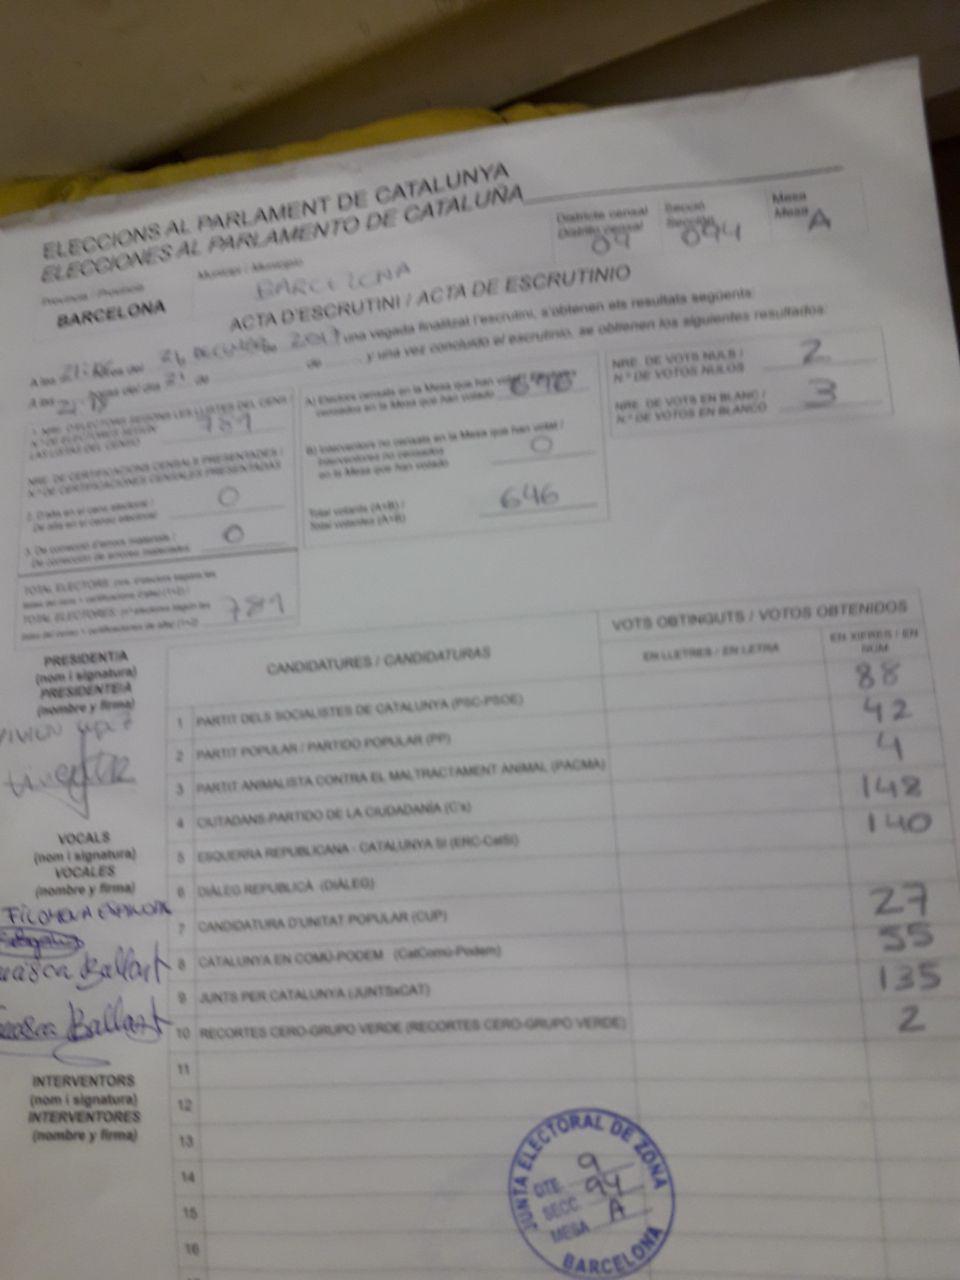 ELECCIONS AL PARLAMENT DE CATALUNYA
ELECCIONES AL PARLAMENTO DE CATALUÑA
Districte censal
Distrito censal
09
Secció
Sección
094
Mesa
Mesa
A
Província / Provincia
BARCELONA
Municipi / Municipio
BARCELONA
ACTA D'ESCRUTINI / ACTA DE ESCRUTINIO
A les hores del 21 DECEMBRE de 2017 una vegada finalitzat l'escrutini, s'obtenen els resultats següents:
A las horas del día 21 de de y una vez concluido el escrutinio, se obtienen los siguientes resultados:
1. NRE. D'ELECTORS SEGONS LES LLISTES DEL CENS /
N.º DE ELECTORES SEGÚN
LAS LISTAS DEL CENSO
789
NRE. DE CERTIFICACIONS CENSALS PRESENTADES /
N.º DE CERTIFICACIONES CENSALES PRESENTADAS
2. D'alta en el cens electoral /
De alta en el censo electoral
0
3. De correcció d'errors materials /
De corrección de errores materiales
0
TOTAL ELECTORS
TOTAL ELECTORES
789
A) Electors censats en la Mesa que han votat
censados en la Mesa que han votado
646
B) Interventors no censats en la Mesa que han votat /
Interventores no censados
en la Mesa que han votado
0
Total votants (A+B) /
Total votantes (A+B)
646
NRE. DE VOTS NULS /
N.º DE VOTOS NULOS
2
NRE. DE VOTS EN BLANC /
N.º DE VOTOS EN BLANCO
3
PRESIDENT/A
(nom i signatura)
PRESIDENTE/A
(nombre y firma)
VOCALS
(nom i signatura)
VOCALES
(nombre y firma)
FILOMENA
Ballart
Ballart
INTERVENTORS
(nom i signatura)
INTERVENTORES
(nombre y firma)
CANDIDATURES / CANDIDATURAS
VOTS OBTINGUTS / VOTOS OBTENIDOS
EN LLETRES / EN LETRA
EN XIFRES / EN NÚM.
1 PARTIT DELS SOCIALISTES DE CATALUNYA (PSC-PSOE) 88
2 PARTIT POPULAR / PARTIDO POPULAR (PP) 42
3 PARTIT ANIMALISTA CONTRA EL MALTRACTAMENT ANIMAL (PACMA) 4
4 CIUTADANS-PARTIDO DE LA CIUDADANÍA (C's) 148
5 ESQUERRA REPUBLICANA - CATALUNYA SÍ (ERC-CatSí) 140
6 DIÀLEG REPUBLICÀ (DIÀLEG)
7 CANDIDATURA D'UNITAT POPULAR (CUP) 27
8 CATALUNYA EN COMÚ-PODEM (CatComú-Podem) 55
9 JUNTS PER CATALUNYA (JUNTSxCAT) 135
10 RECORTES CERO-GRUPO VERDE (RECORTES CERO-GRUPO VERDE) 2
11
12
13
14
15
16
JUNTA ELECTORAL DE ZONA
DTE. 9
SECC. 94
MESA A
BARCELONA